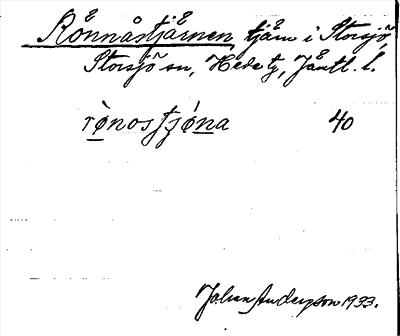 Rönnåstjärnen, tjärn i Storsjö,
Storsjö sn, Hede tg, Jämtl. l.
rø̀nostjǿna 40
Johan Anderzson 1933.